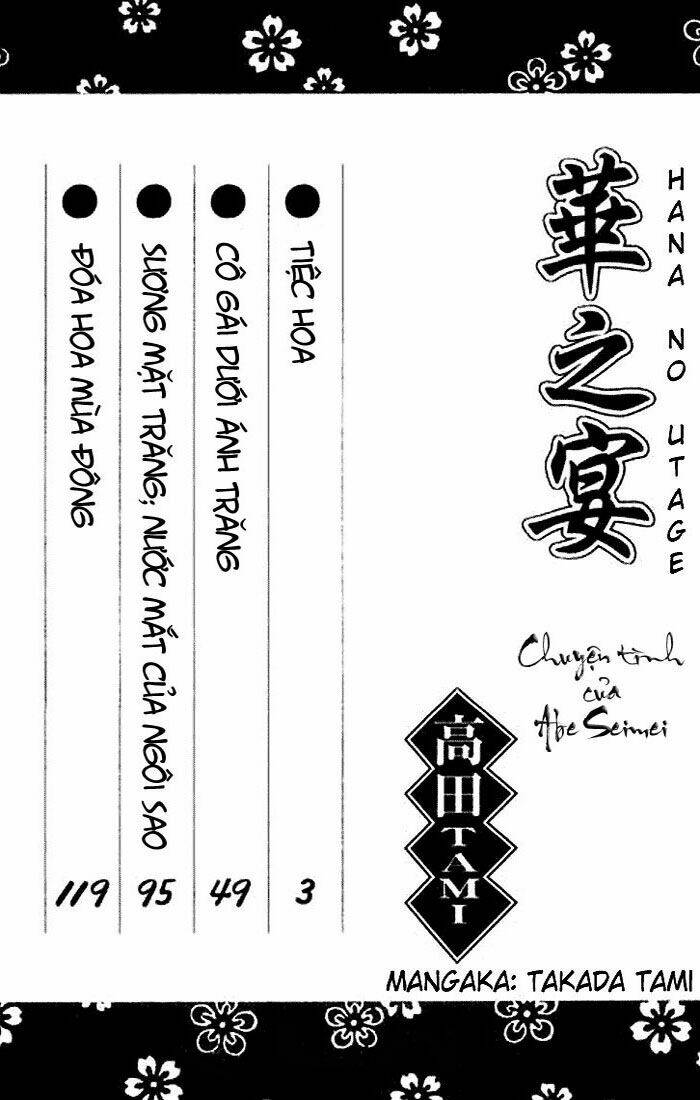 華之宴
HANA NO UTAGE
Chuyện tình
của
Abe Seimei
高田TAMI
MANGAKA: TAKADA TAMI
TIỆC HOA 3
CÔ GÁI DƯỚI ÁNH TRĂNG 49
SƯƠNG MẶT TRĂNG; NƯỚC MẮT CỦA NGÔI SAO 95
ĐÓA HOA MÙA ĐÔNG 119